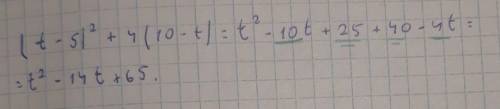 (t - 5)² + 4(10 - t) = t² - 10t + 25 + 40 - 4t =
= t² - 14t + 65.